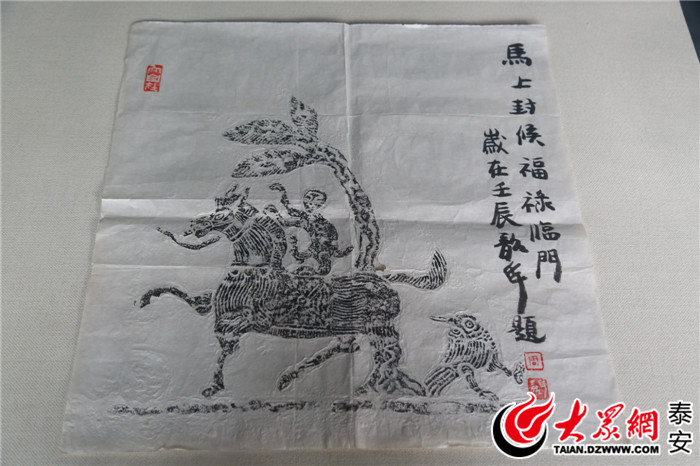 馬上封候福禄临門
歲在壬辰
題
大众網
泰安
TAIAN.DZWWW.COM